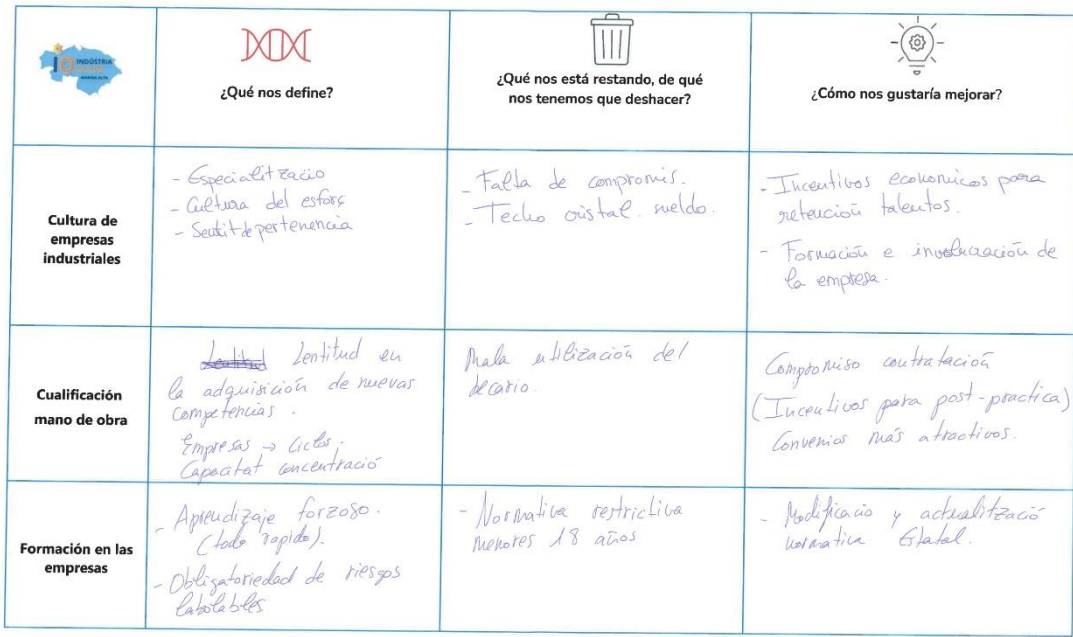 INDÚSTRIA
MARINA ALTA
¿Qué nos define?
¿Qué nos está restando, de qué
nos tenemos que deshacer?
¿Cómo nos gustaría mejorar?
Cultura de
empresas
industriales
- Especialització
- Cultura del esforç
- Sentit de pertenencia
- Falta de compromis.
- Techo cristal. sueldo.
- Incentivos economicos para
retención talentos.
- Formación e involucración de
la empresa.
Cualificación
mano de obra
Lentitud Lentitud en
la adquisición de nuevas
competencias.
Empresas → Ciclos.
Capacitat concentració
Mala utilización del
becario.
Compromiso contratación
(Incentivos para post-practica)
Convenios más atractivos.
Formación en las
empresas
- Aprendizaje forzoso.
(todo rapido).
- Obligatoriedad de riesgos
labolables
- Normativa restrictiva
menores 18 años
- Modificacio y actualització
normativa Estatal.